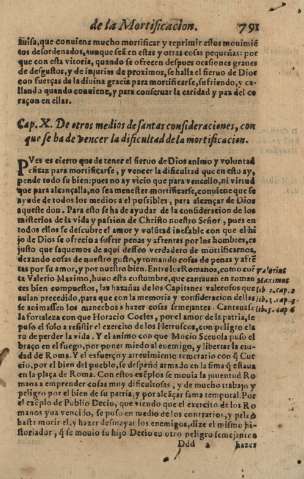 de la Mortificacion. 791
uuisa, que conuiena mucho mortificar y reprimir estos mouimiẽ
tos desordenados, aunque seã en estas y otras cosas pequeñas: por
que con esta vitoria, quando se ofrecen despues ocasiones grandes
de desgustos, y de injurias de proximos, se halla el sieruo de Dios
con fuerças de la diuina gracia para mortificarse, sufriendo, y ca-
llando quando conuiene, y para conseruar la caridad y paz del co
raçon en ellas.
Cap. X. De otros medios de santas consideraciones, con
que se ha de vencer la dificultad de la mortificacion.
PVes es cierto que de tener el sieruo de Dios animo y voluntad
para mortificarse, y vencer la dificultad que en esto ay,
pende todo su bien: pues no ay vicio que para vencello, ni virtud
que para alcançalla, no sea menester mortificarse, conuiene que se
ayude de todos los medios a el possibles, para alcançar de Dios
aqueste don. Para esto se ha de ayudar de la consideracion de los
misterios de la vida y passion de Christo nuestro Señor, pues en
todos ellos se descubre el amor y volũtad inefable con que el hi
jo de Dios se ofrecio a sufrir penas y afrentas por los hombres, es
justo que saquemos de aqui desseo verdadero de mortificarnos,
dexando cosas de nuestro gusto, y tomando cosas de penas y afrẽ
tas por su amor, y por nuestro bien. Entre los Romanos, como re Valerius
te Valerio Maximo, huuo esta costumbre, que cantauan en tonos Maximus
bien compuestos, las hazañas de los Capitanes valerosos que lib. 2. cap. 2.
auian precedido, para que con la memoria y consideracion dellas lib. 3. cap. 2
se animassen los mancebos a hazer cosas semejantes. Cantauan lib. 5. cap. 6
la fortaleza con que Horacio Cocles, por el amor de la patria, se
puso el solo a resistir el exercito de los Hetruscos, con peligro cla
ro de perder la vida. Y el animo con que Mucio Sceuola puso el
braço en el fuego, por poner miedo al enemigo, y libertar la ciu-
dad de Roma. Y el esfuerço y atreuimiento temerario con q̃ Cur
cio, por el bien del pueblo, se despeñó armado en la sima q̃ estaua
en la plaça de Roma. Con estos exẽplos se mouia la juuentud Ro
mana a emprender cosas muy dificultosas, y de mucho trabajo y
peligro por el bien de su patria, y por alcãçar fama temporal. Por
el exẽplo de Publio Decio, que viendo que el exercito de los Ro
manos yua vencido, se puso en medio de los contrarios, y peleò
hasta morir el, y hazer desmayar los enemigos, dize el mismo hi-
storiador, q̃ se mouio su hijo Decio en otro peligro semejante a
Ddd 2 hazer